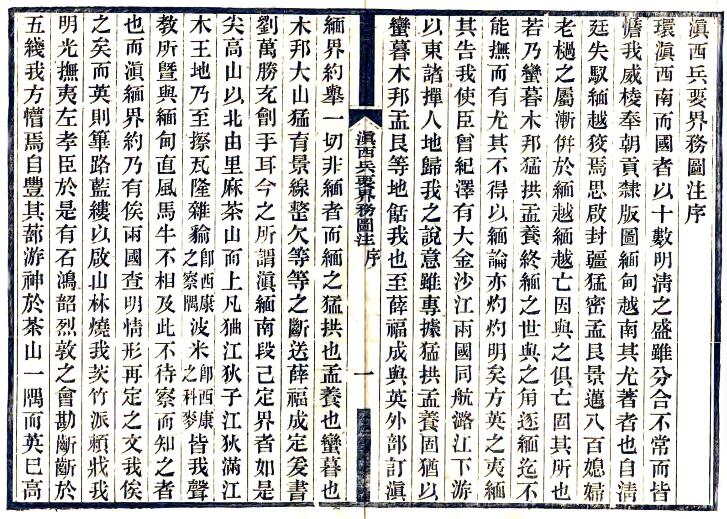 滇西兵要界務圖注序
環滇西南而國者以十數明清之盛雖分合不常而皆
憺我威棱奉朝貢隸版圖緬甸越南其尤著者也自清
廷失馭緬越狡焉思啟封疆猛密孟艮景邁八百媳婦
老撾之屬漸併於緬越緬越亡因與之俱亡固其所也
若乃蠻暮木邦猛拱孟養終緬之世與之角逐緬迄不
能撫而有尤其不得以緬論亦灼灼明矣方英之夷緬
其告我使臣曾紀澤有大金沙江兩國同航潞江下游
以東諸撣人地歸我之說意雖專據猛拱孟養固猶以
蠻暮木邦孟艮等地餂我也至薛福成與英外部訂滇
滇西兵要界務圖注 序
一
緬界約舉一切非緬者而緬之猛拱也孟養也蠻暮也
木邦大山猛育景線整欠等等之斷送薛福成定爰書
劉萬勝充劊手耳今之所謂滇緬南段已定界者如是
尖高山以北由里麻茶山而上凡狇江狄子江狄滿江
木王地乃至擦瓦隆雜貐卽西康之察隅波米卽西康之科麥皆我聲
教所曁與緬甸直風馬牛不相及此不待察而知之者
也而滇緬界約乃有俟兩國查明情形再定之文我俟
之矣而英則篳路藍縷以啟山林燒我茨竹派賴戕我
明光撫夷左孝臣於是有石鴻韶烈敦之會勘斷斷於
五綫我方懵焉自豐其蔀游神於茶山一隅而英已高